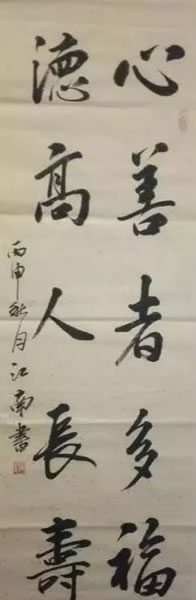 心善者多福
德高人長壽
丙申秋月江南書